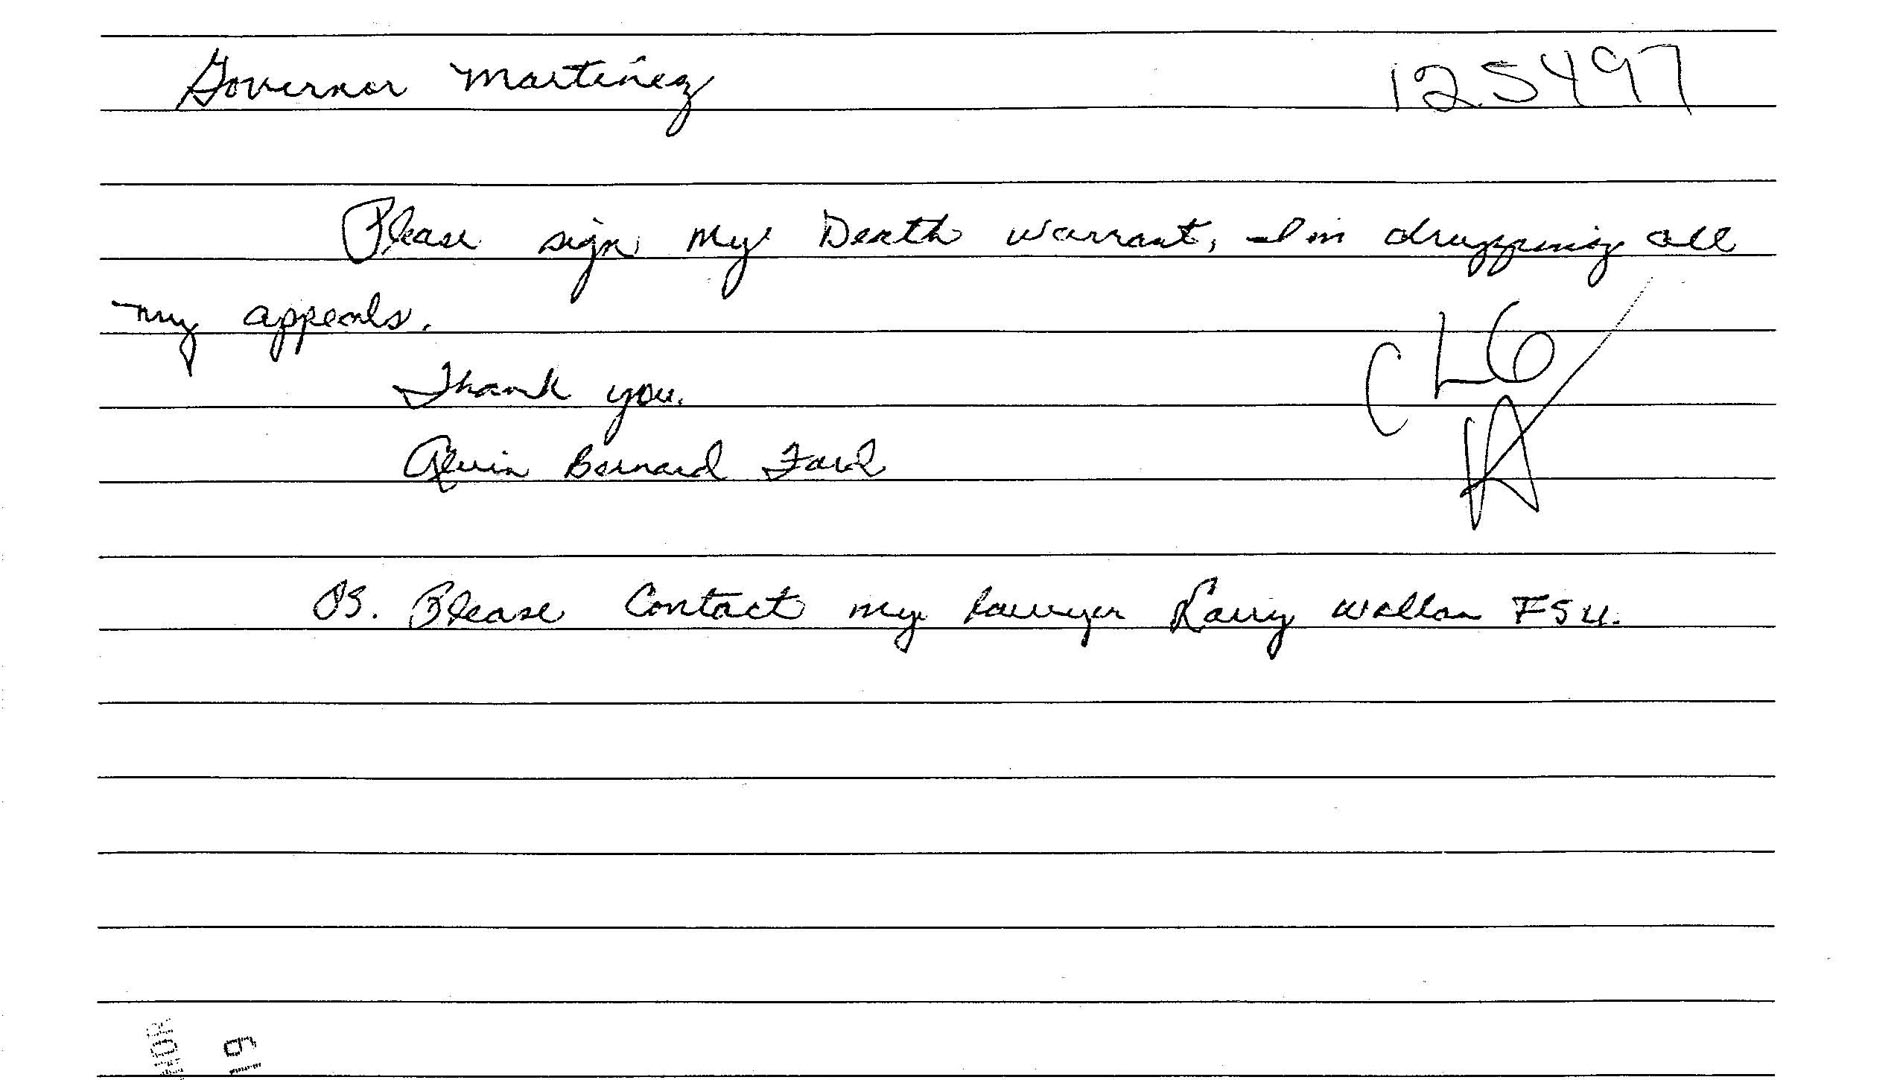 Governor Martinez 125497
Please sign my Death warrant, I'm druppining all
my appeals.
Thank you.
Alvin Bernard Ford
PS. Please Contact my lawyer Larry FSU.
CLG
19